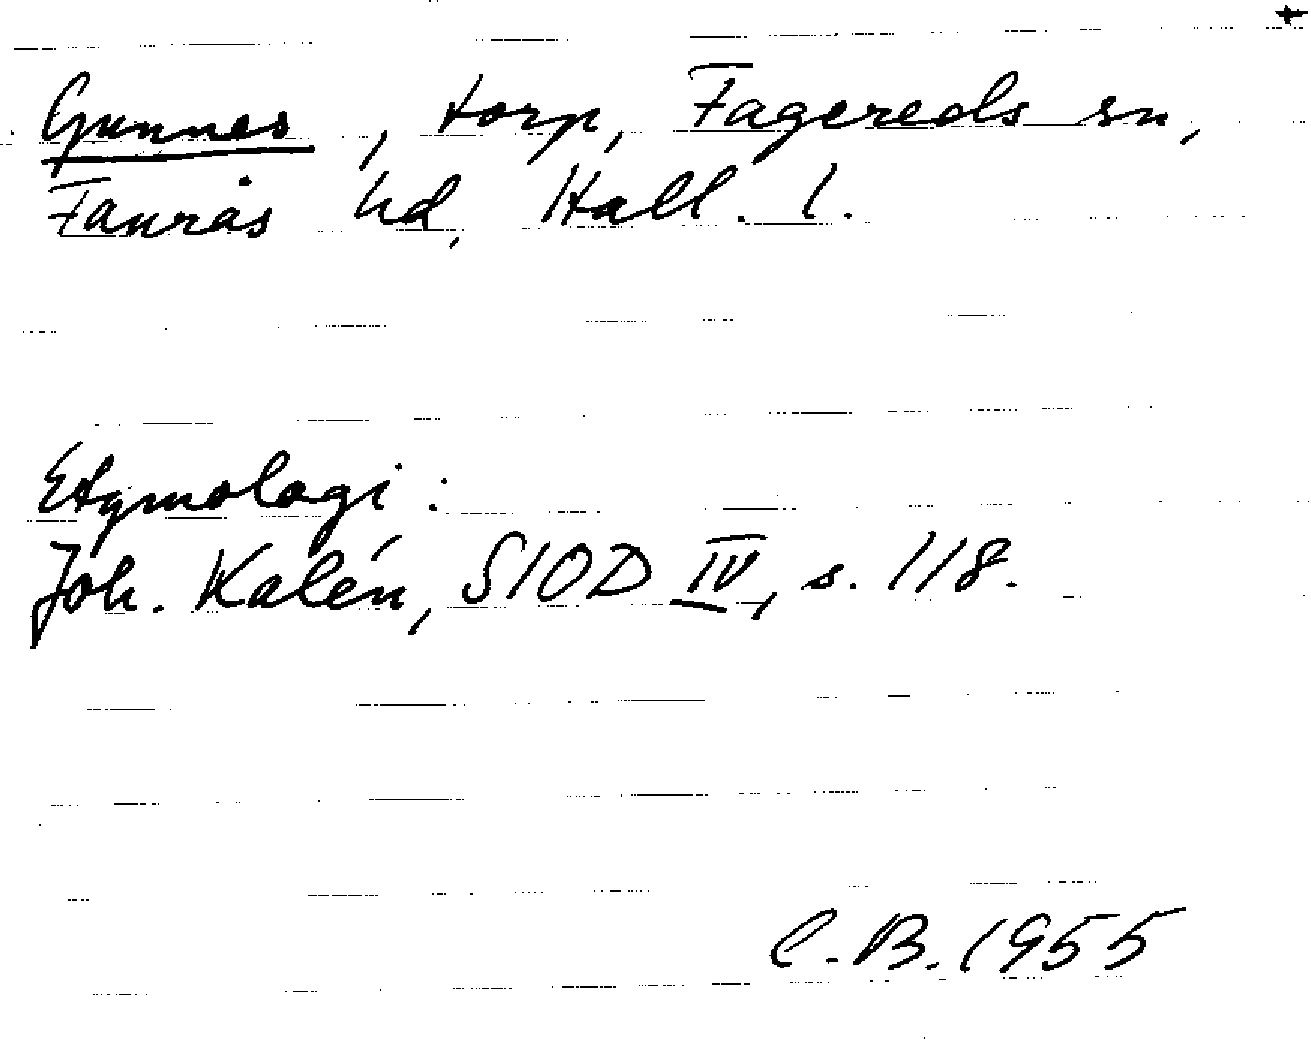 Gunnes, torp, Fagereds sn,
Faurås hd, Hall. l.
Etymologi:
Joh. Kalén, SIOD IV, s. 118.
C.B. 1955